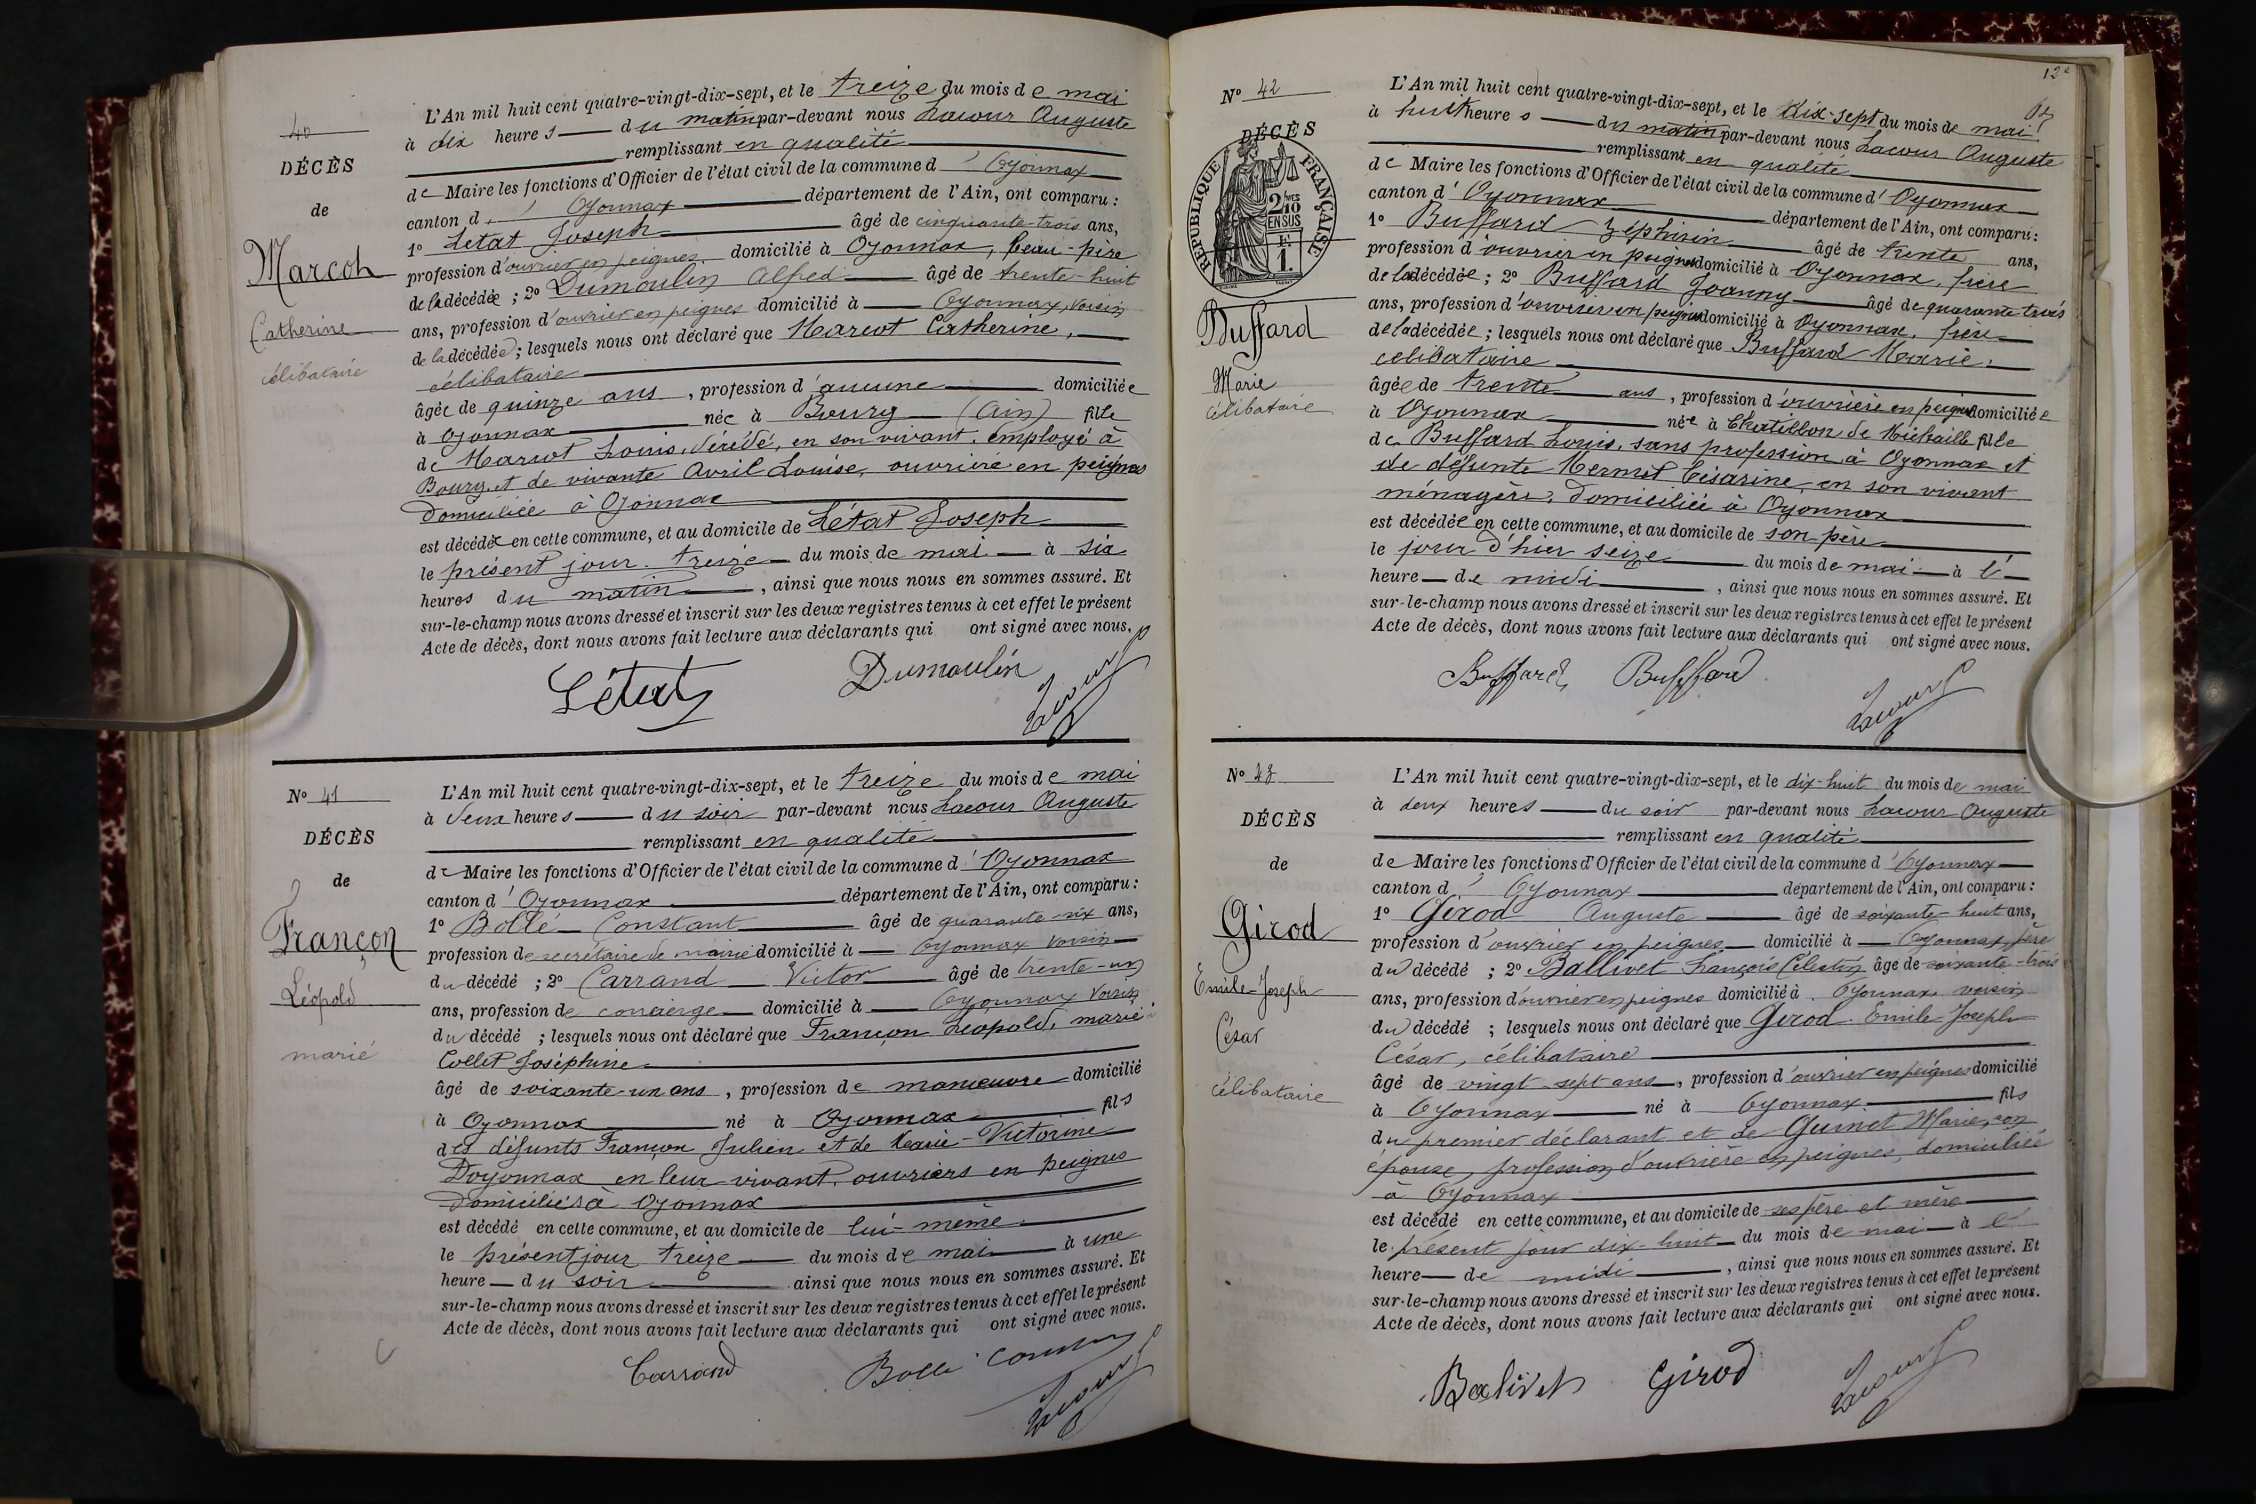 40
DÉCÈS
de
Marcon
Catherine
célibataire
L'An mil huit cent quatre-vingt-dix-sept, et le treize du mois de mai
à dix heures du matin par-devant nous Lacour Auguste
remplissant en qualité
de Maire les fonctions d'Officier de l'état civil de la commune d'Oyonnax
canton d'Oyonnax département de l'Ain, ont comparu :
1º Létat Joseph âgé de cinquante-trois ans,
profession d'ouvrier en peignes domicilié à Oyonnax, beau-père
de la décédée ; 2º Dumoulin Alfred âgé de trente-huit
ans, profession d'ouvrier en peignes domicilié à Oyonnax, voisin
de la décédée ; lesquels nous ont déclaré que Marcot Catherine,
célibataire
âgée de quinze ans, profession d'aucune domiciliée
à Oyonnax née à Bourg (Ain) fille
de Marcot Louis, décédé, en son vivant, employé à
Bourg, et de vivante Avril Louise, ouvrière en peignes
domiciliée à Oyonnax
est décédée en cette commune, et au domicile de Létat Joseph
le présent jour treize du mois de mai à six
heures du matin, ainsi que nous nous en sommes assuré. Et
sur-le-champ nous avons dressé et inscrit sur les deux registres tenus à cet effet le présent
Acte de décès, dont nous avons fait lecture aux déclarants qui ont signé avec nous.
Létat Dumoulin Lacour
Nº 41
DÉCÈS
de
Françon
Léopold
marié
L'An mil huit cent quatre-vingt-dix-sept, et le treize du mois de mai
à deux heures du soir par-devant nous Lacour Auguste
remplissant en qualité
de Maire les fonctions d'Officier de l'état civil de la commune d'Oyonnax
canton d'Oyonnax département de l'Ain, ont comparu :
1º Bollé Constant âgé de quarante-six ans,
profession de secrétaire de mairie domicilié à Oyonnax voisin
du décédé ; 2º Carrand Victor âgé de trente-un
ans, profession de concierge domicilié à Oyonnax voisin
du décédé ; lesquels nous ont déclaré que Françon Léopold, marié à
Collet Joséphine
âgé de soixante-un ans, profession de manœuvre domicilié
à Oyonnax né à Oyonnax fils
des défunts Françon Julien et de Marie-Victorine
Doyonnax en leur vivant, ouvriers en peignes
domiciliés à Oyonnax
est décédé en cette commune, et au domicile de lui-même
le présent jour treize du mois de mai à une
heure du soir ainsi que nous nous en sommes assuré. Et
sur-le-champ nous avons dressé et inscrit sur les deux registres tenus à cet effet le présent
Acte de décès, dont nous avons fait lecture aux déclarants qui ont signé avec nous.
Carrand Bollé Constant Lacour
12e
Nº 42
DÉCÈS
RÉPUBLIQUE FRANÇAISE
2/10 EN SUS
1
Buffard
Marie
célibataire
L'An mil huit cent quatre-vingt-dix-sept, et le dix-sept du mois de mai
à huit heures du matin par-devant nous Lacour Auguste
remplissant en qualité
de Maire les fonctions d'Officier de l'état civil de la commune d'Oyonnax
canton d'Oyonnax département de l'Ain, ont comparu :
1º Buffard Zéphirin âgé de trente ans,
profession d'ouvrier en peignes domicilié à Oyonnax, frère
de la décédée ; 2º Buffard Joanny âgé de quarante-trois
ans, profession d'ouvrier en peignes domicilié à Oyonnax, frère
de la décédée ; lesquels nous ont déclaré que Buffard Marie,
célibataire
âgée de trente ans, profession d'ouvrière en peignes domiciliée
à Oyonnax née à Chatillon de Michaille fille
de Buffard Louis, sans profession à Oyonnax et
de défunte Mermet Césarine, en son vivant
ménagère, domiciliée à Oyonnax
est décédée en cette commune, et au domicile de son père
le jour d'hier seize du mois de mai à l'
heure de midi, ainsi que nous nous en sommes assuré. Et
sur-le-champ nous avons dressé et inscrit sur les deux registres tenus à cet effet le présent
Acte de décès, dont nous avons fait lecture aux déclarants qui ont signé avec nous.
Buffard Buffard Lacour
Nº 43
DÉCÈS
de
Girod
Emile-Joseph
César
célibataire
L'An mil huit cent quatre-vingt-dix-sept, et le dix-huit du mois de mai
à deux heures du soir par-devant nous Lacour Auguste
remplissant en qualité
de Maire les fonctions d'Officier de l'état civil de la commune d'Oyonnax
canton d'Oyonnax département de l'Ain, ont comparu :
1º Girod Auguste âgé de soixante-huit ans,
profession d'ouvrier en peignes domicilié à Oyonnax, père
du décédé ; 2º Ballivet François Célestin âgé de soixante-trois
ans, profession d'ouvrier en peignes domicilié à Oyonnax, voisin
du décédé ; lesquels nous ont déclaré que Girod Emile Joseph
César, célibataire
âgé de vingt-sept ans, profession d'ouvrier en peignes domicilié
à Oyonnax né à Oyonnax fils
du premier déclarant et de Guinet Marie, son
épouse, profession d'ouvrière en peignes, domiciliée
à Oyonnax
est décédé en cette commune, et au domicile de ses père et mère
le présent jour dix-huit du mois de mai à l'
heure de midi, ainsi que nous nous en sommes assuré. Et
sur-le-champ nous avons dressé et inscrit sur les deux registres tenus à cet effet le présent
Acte de décès, dont nous avons fait lecture aux déclarants qui ont signé avec nous.
Balivet Girod Lacour